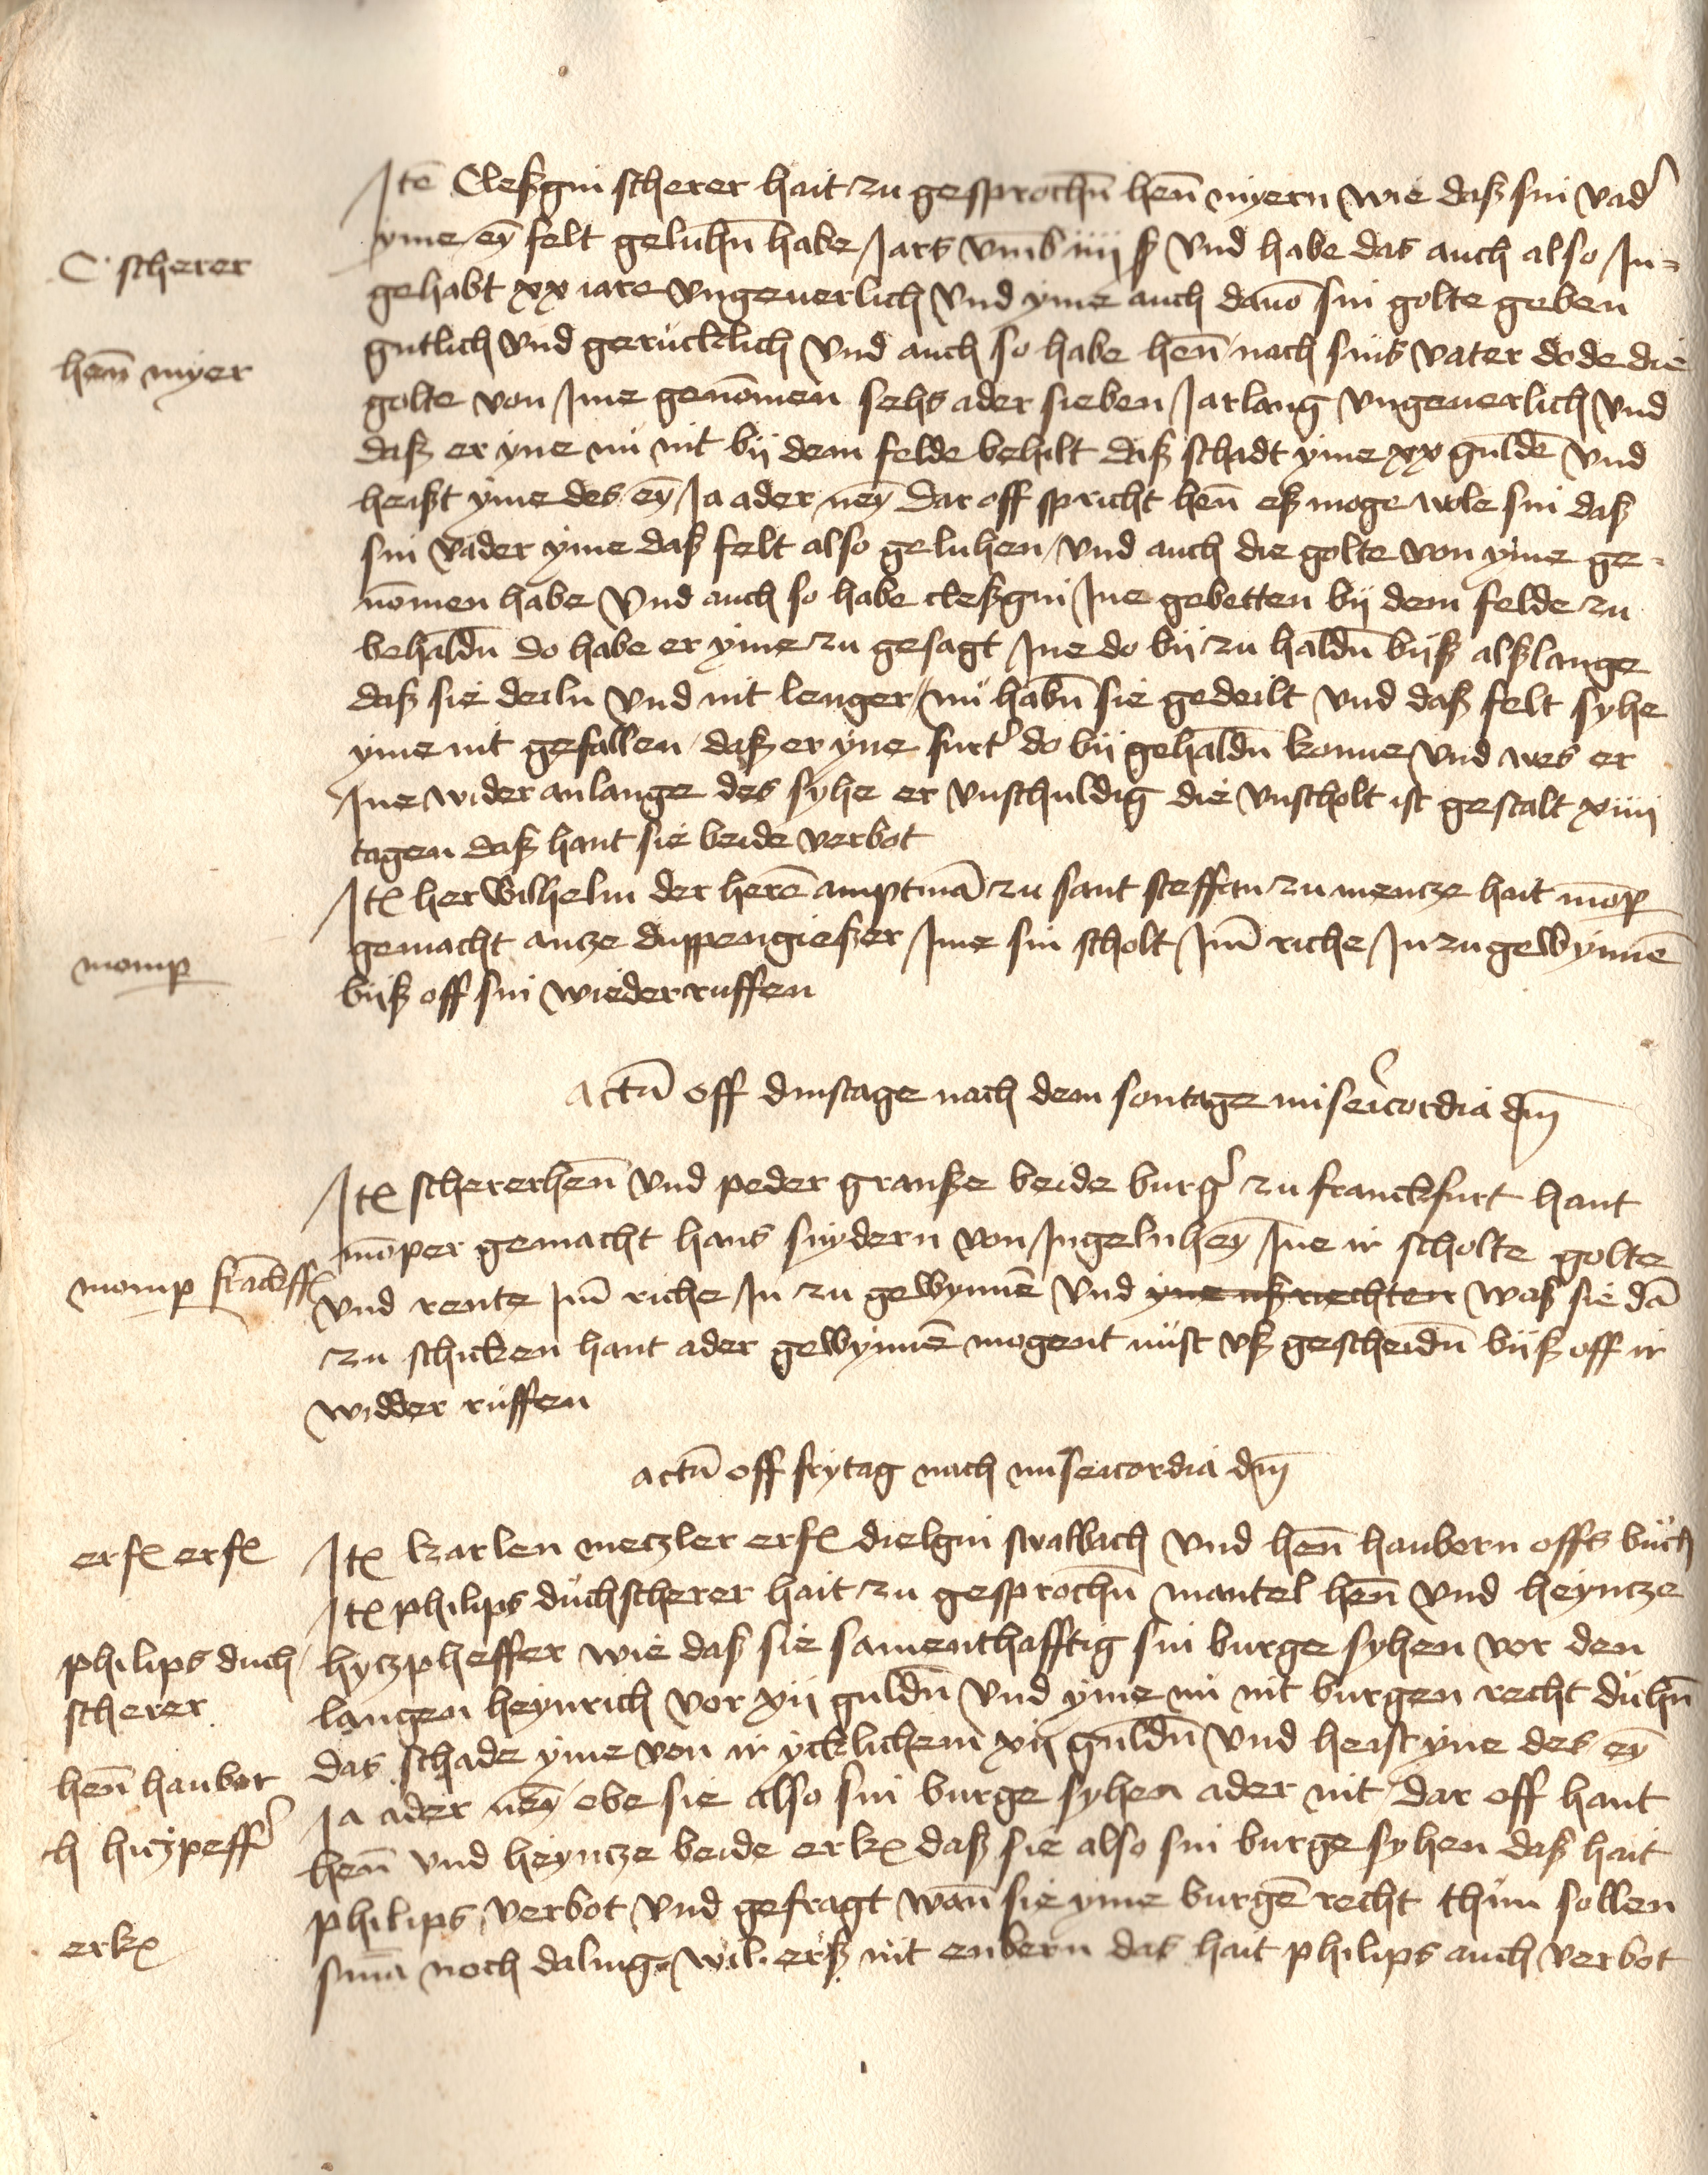 Itē Cleßgin scherer hait zu gesprochn̄ hen̄ myern wie daß sin vad'
yme eȳ felt geluhn̄ habe Jars vm̄b iiij ß vnd habe das auch also In=
C scherer
gehabt xx iare vngeuerlich vnd yme auch dauō sin golte geben
gutlich vnd gerucklich vnd auch so habe hen̄ nach sins vater dode die
hen̄ myer
golte von Ime genōmen sehs ader sieben Jarlang vngeuerlich vnd
daß er yne nü nit bij dem felde behilt daß schadt yme xx guldē vnd
heißt yme des eȳ Ja ader neȳ dar off spricht hen̄ eß moge wole sin daß
sin vader yme daß felt also geluhen vnd auch die golte von yme ge-
nōmen habe vnd auch so habe cleßgin Ine gebetten bij dem felde zu
behaldn̄ do habe er yme zu gesagt Ine do bij zu haldn̄ bijß alßlange
daß sie deiln vnd nit lenger / nü habn̄ sie gedeilt vnd daß felt syhe
yme nit gefallen daß er yne furt' do bij gehaldn̄ konne vnd wes er
Ine wider anlange des syhe er vnschuldig die vnscholt ist gestalt xiiij
tagen daß hant sie beide verbot
Itꝫ her Wilhelm der herē amptmā zu sant steffan zu mencze hait mōp
gemacht ancze duppengießer Ime sin scholt Im̄ riche In zu gewynnē
momp
bijß off sin wiederruffen
Actū off dinstage nach dem sontage misericordia dm̄
Itꝫ schererhen̄ vnd peder granße beide burg' zu franckfurt hant
mōper gemacht hans snydern von Ingelnheȳ Ine ir scholte golte
momp frāckff
vnd rente Im̄ riche In zu gewynnē vnd yne uß riechten waß sie dā
zu schicken hant ader gewynnē mogent nüst vß gescheidn̄ bijß off ir
widder ruffen
actū off frytag nach misericordia dm̄
erfꝫ erfꝫ
Itꝫ karlen meczler erfꝫ dielgin swalbach vnd hen̄ haubern offs büch
Itꝫ philips duchscherer hait zu gesprochn̄ mantel hen̄ vnd heyncze
philips duch
scherer
hyczpheffer wie daß sie samenthafftig sin burge syhen vor den
langen heynrich vor xij guldn̄ vnd yme nü nit burgen recht duhn̄
das schade yme von ir ycklichem xij guldn̄ vnd heist yne des eȳ
hen̄ hauber
Ja ader neȳ / obe sie also sin burge syhen ader nit dar off hant
h hiczpeff'
hen̄ vnd heyncze beide erkꝫ daß sie also sin burge syhen daß hait
philips verbot vnd gefragt wan̄ sie yme burgē recht thun sollen
erkꝫ
smā noch daling wil erß nit enbern das hait philips auch verbot